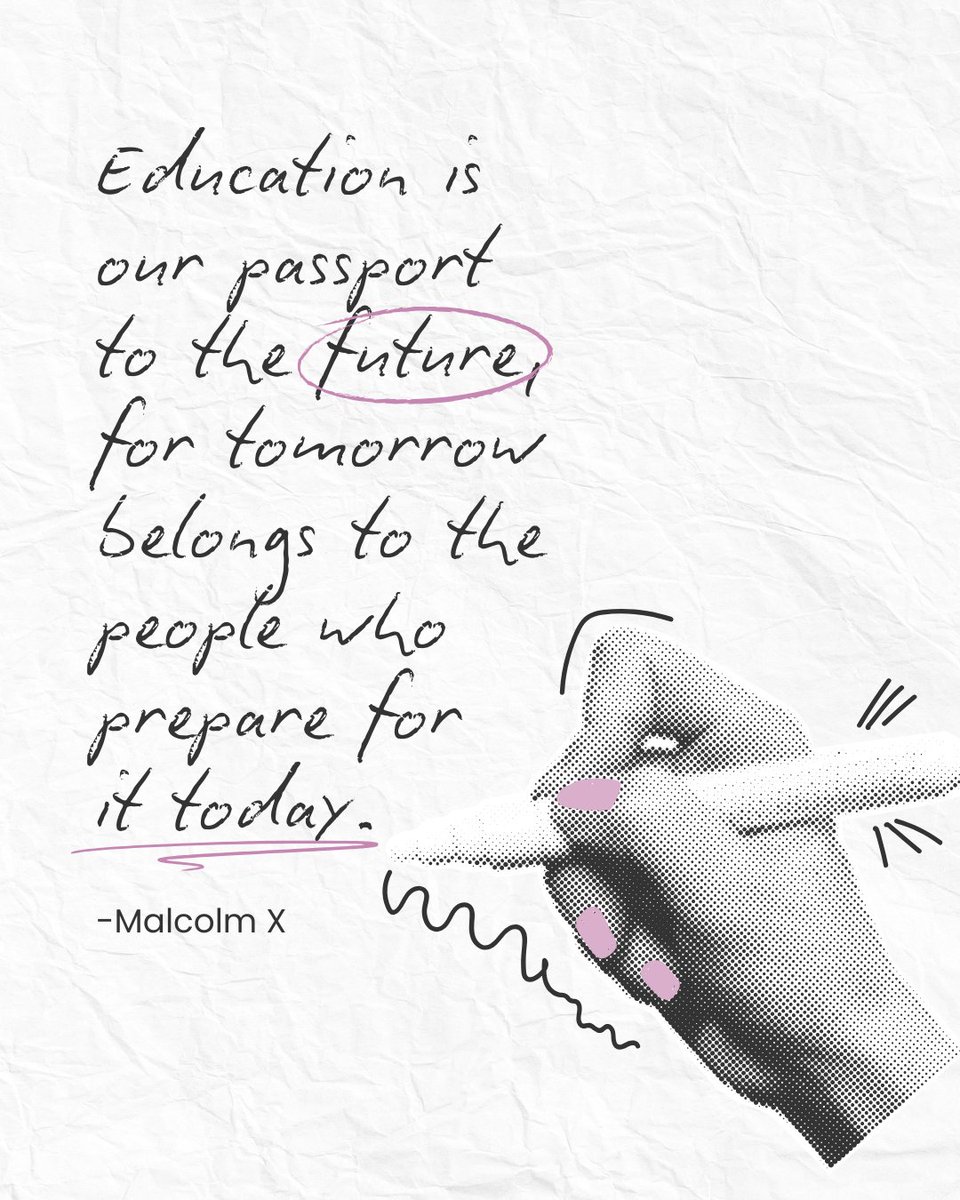 Education is
our passport
to the future,
for tomorrow
belongs to the
people who
prepare for
it today.
-Malcolm X